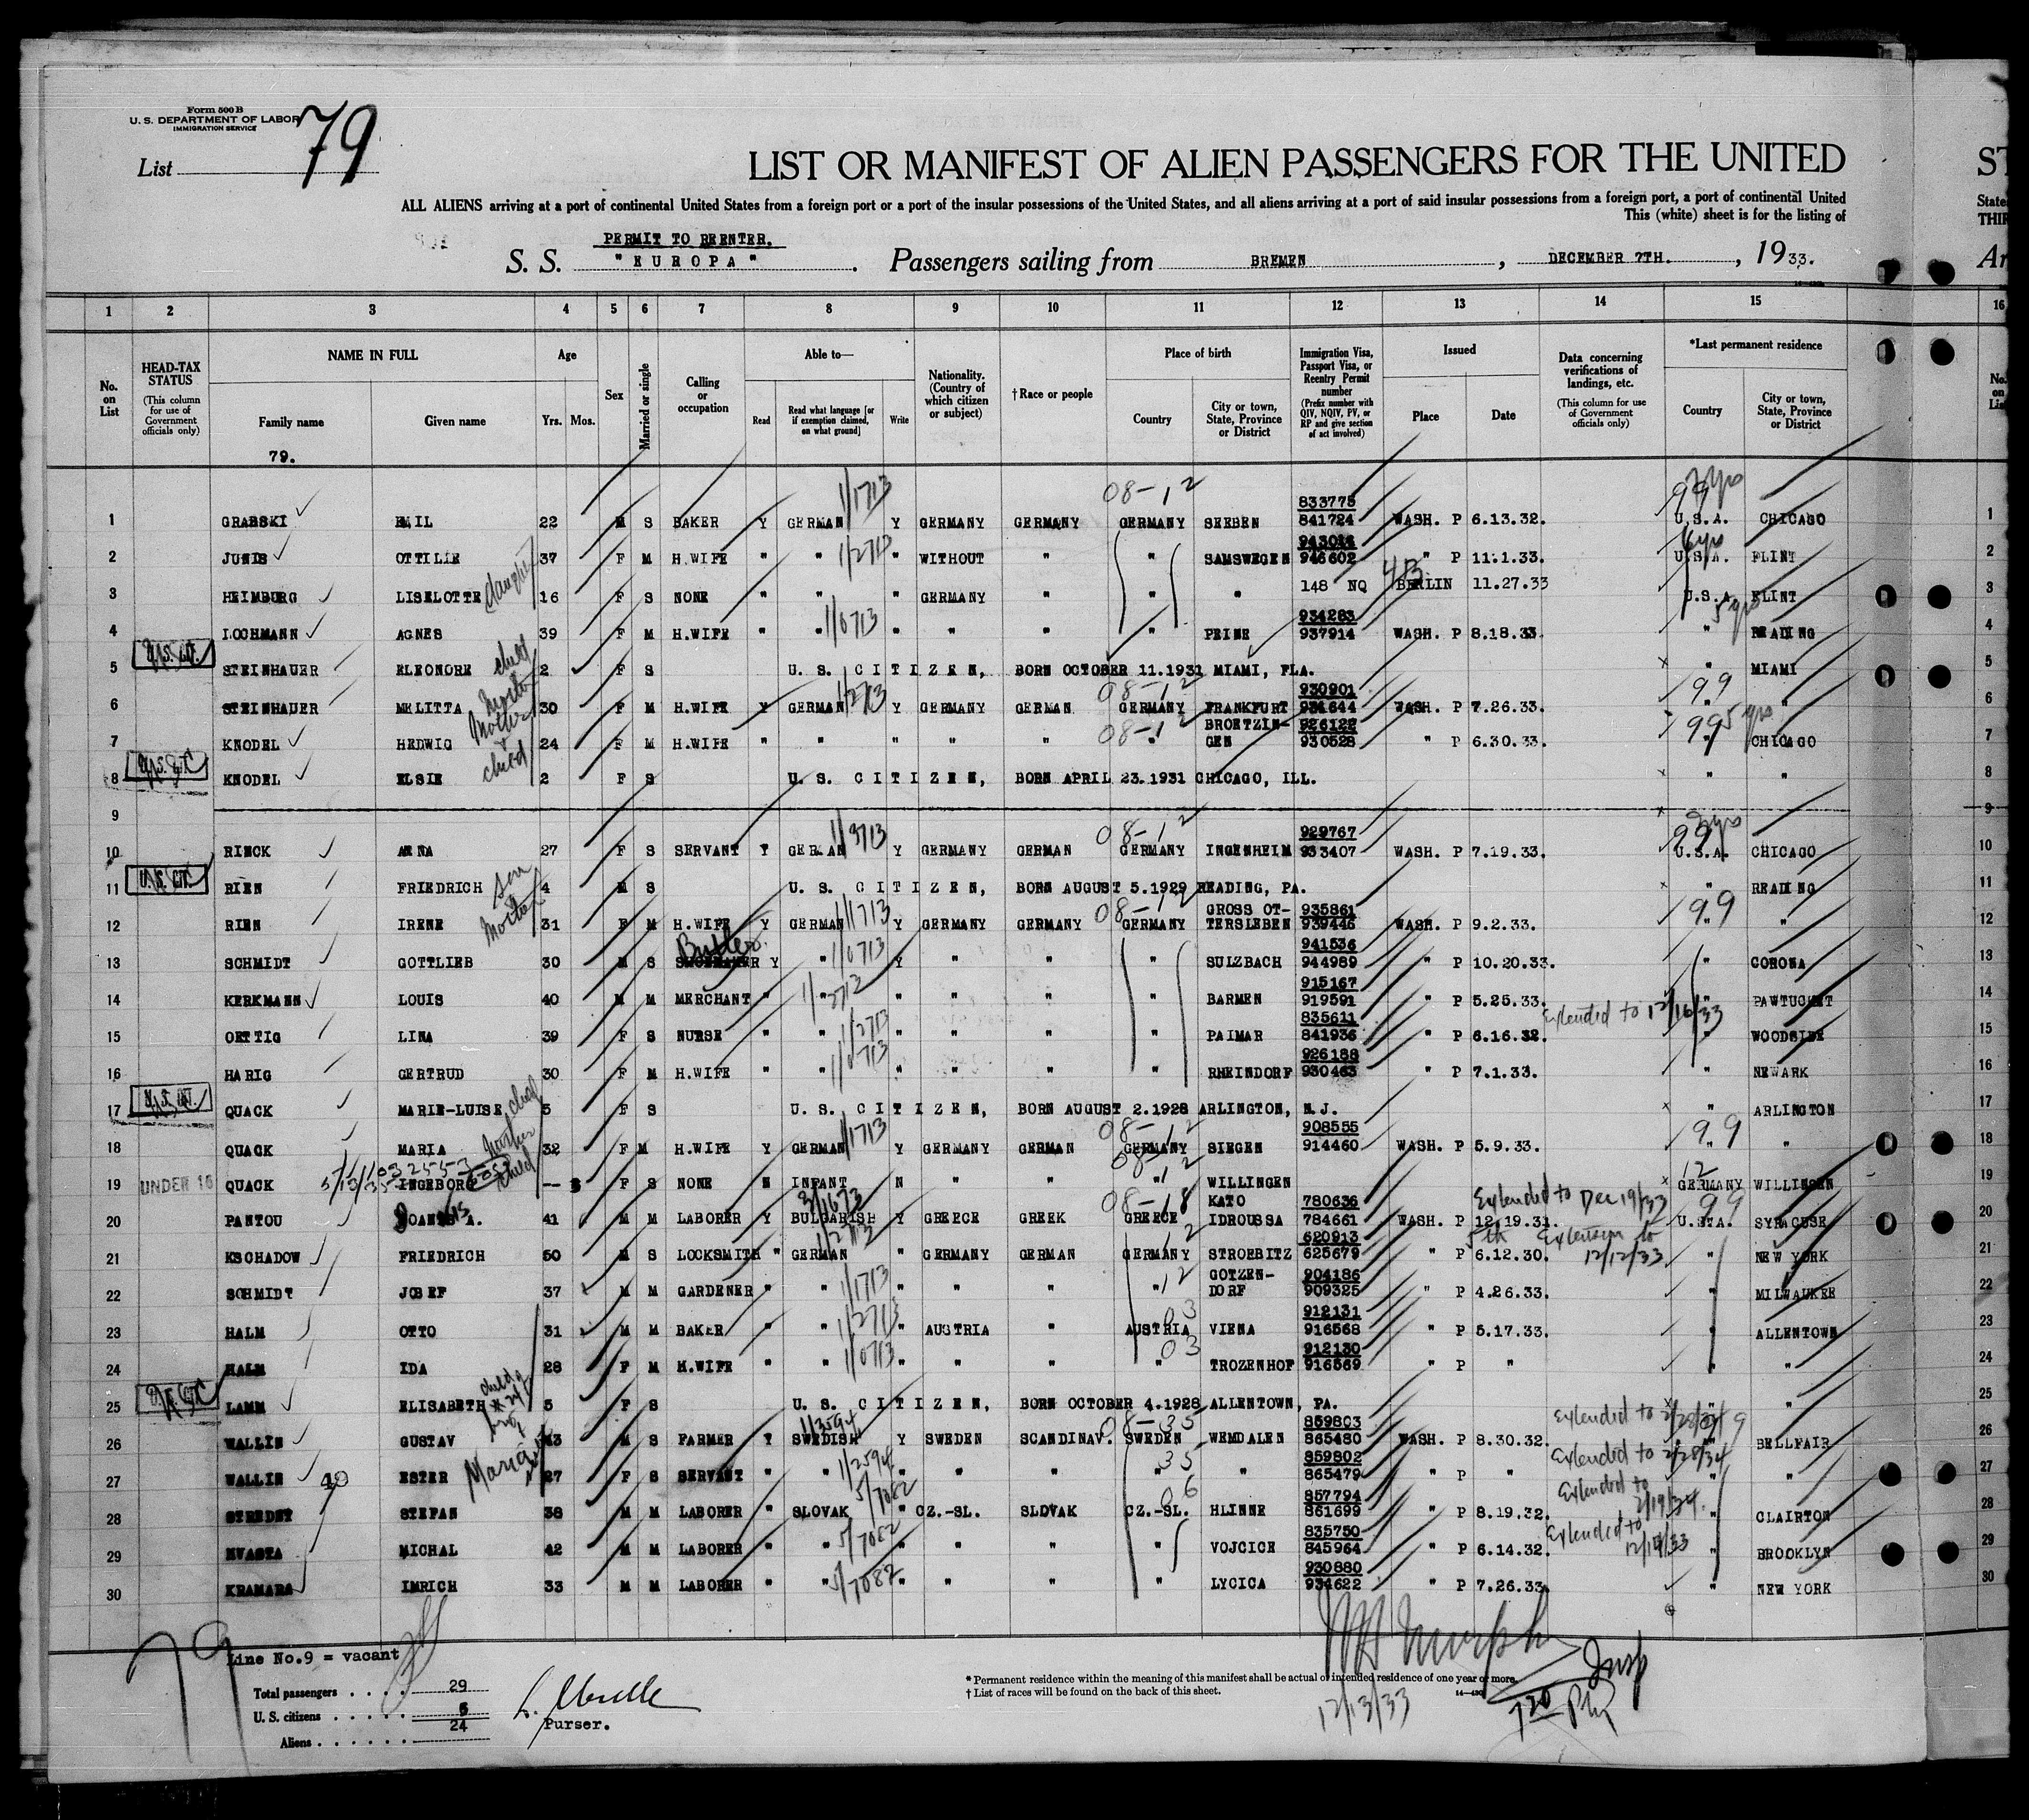 Form 500 B
U. S. DEPARTMENT OF LABOR
IMMIGRATION SERVICE
List 79
LIST OR MANIFEST OF ALIEN PASSENGERS FOR THE UNITED
ST
ALL ALIENS arriving at a port of continental United States from a foreign port or a port of the insular possessions of the United States, and all aliens arriving at a port of said insular possessions from a foreign port, a port of continental United
State
This (white) sheet is for the listing of
THIR
PERMIT TO REENTER.
S. S. "EUROPA". Passengers sailing from BREMEN, DECEMBER 7TH., 1933.
Ar
1 2 3 4 5 6 7 8 9 10 11 12 13 14 15 16
No. on List
HEAD-TAX STATUS (This column for use of Government officials only)
NAME IN FULL
Family name Given name
Age
Yrs. Mos.
Sex
Married or single
Calling or occupation
Able to—
Read Read what language [or if exemption claimed, on what ground] Write
Nationality. (Country of which citizen or subject)
† Race or people
Place of birth
Country City or town, State, Province or District
Immigration Visa, Passport Visa, or Reentry Permit number (Prefix number with QIV, NQIV, PV, or RP and give section of act involved)
Issued
Place Date
Data concerning verifications of landings, etc. (This column for use of Government officials only)
*Last permanent residence
Country City or town, State, Province or District
79.
833775
1 GRABSKI 22 M S BAKER Y GERMAN 1/1713 Y GERMANY GERMANY 08-12 GERMANY SEEBEN 841724 WASH. P 6.13.32. 99 U.S.A. CHICAGO 1
2 JUNDS OTTILIE 37 F M H.WIFE " " 1/2713 " WITHOUT " " SAMSWEGEN 946602 " P 11.1.33. 6 yrs U.S.A. FLINT 2
3 HEIMBURG LISELOTTE daughter 16 F S NONE " " " GERMANY " " " 148 NQ BERLIN 11.27.33 U.S.A. FLINT 3
934283
4 LOCHMANN AGNES 39 F M H.WIFE " " 1/0713 " " " " PEINE 937914 WASH. P 8.18.33. 5 yrs " READING 4
U.S. CIT.
5 STEINHAUER ELEONORE child 2 F S U. S. CITIZEN, BORN OCTOBER 11.1931 MIAMI, FLA. " MIAMI 5
930901
6 STEINHAUER MELITTA Mother 30 F M H.WIFE Y GERMAN 1/2713 Y GERMANY GERMAN 08-12 GERMANY FRANKFURT 931644 WASH. P 7.26.33. 99 " " 6
BROETZIN- 926122
7 KNODEL HEDWIG Mother 24 F M H.WIFE " " " " " 08-1 " GEN 930528 " P 6.30.33. 99 5 yrs " CHICAGO 7
8 KNODEL ELSIE child 2 F S U. S. CITIZEN, BORN APRIL 23.1931 CHICAGO, ILL. " " 8
9 9
929767
10 RINCK ANNA 27 F S SERVANT Y GERMAN 1/3713 Y GERMANY GERMAN 08-12 GERMANY INGENHEIM 933407 WASH. P 7.19.33. 99 U.S.A. CHICAGO 10
U. S. CIT.
11 RIEN FRIEDRICH son 4 M S U. S. CITIZEN, BORN AUGUST 5.1929 READING, PA. " READING 11
GROSS OT- 935861
12 RIEN IRENE Mother 31 F M H.WIFE Y GERMAN 1/1713 Y GERMANY GERMANY 08-12 GERMANY TERSLEBEN 939446 WASH. P 9.2.33. 99 " " 12
Butler 941536
13 SCHMIDT GOTTLIEB 30 M S Y " 1/0713 Y " " " SULZBACH 944989 " P 10.20.33. " CORONA 13
915167
14 KERKMANN LOUIS 40 M M MERCHANT " " " " " " BARMEN 919591 " P 5.25.33. " PAWTUCKET 14
835611 Extended to 12/16/33
15 OETTIG LINA 39 F S NURSE " " 1/2713 " " " " PAIMAR 841936 " P 6.16.32. " WOODSIDE 15
926188
16 HARIG GERTRUD 30 F M H.WIFE " " 1/0713 " " " " RHEINDORF 930463 " P 7.1.33. " NEWARK 16
17 QUACK MARIE-LUISE child 5 F S U. S. CITIZEN, BORN AUGUST 2.1928 ARLINGTON, N.J. " ARLINGTON 17
908555
18 QUACK MARIA Mother 32 F M H.WIFE Y GERMAN 1/1713 Y GERMANY GERMAN 08-12 GERMANY SIEGEN 914460 WASH. P 5.9.33. 99 " " 18
19 UNDER 16 QUACK INGEBORG child -- F S NONE N INFANT N " " " WILLINGEN 12 GERMANY WILLINGEN 19
KATO 780636 Extended to Dec 19/33
20 PANTOU A. 41 M M LABORER Y BULGARISH Y GREECE GREEK 08-18 GREECE IDROUSSA 784661 WASH. P 12.19.31. 99 U.S.A. SYRACUSE 20
620913 5th Extension to 12/12/33
21 KSCHADOW FRIEDRICH 50 M S LOCKSMITH " GERMAN 1/2713 " GERMANY GERMAN GERMANY STROEBITZ 625679 " P 6.12.30. " NEW YORK 21
GOTZEN- 904186
22 SCHMIDT JOSEF 37 M M GARDENER " " 1/1713 " " " " 12 DORF 909325 " P 4.26.33. " MILWAUKEE 22
912131
23 HALM OTTO 31 M M BAKER " " 1/2713 " AUSTRIA " 03 AUSTRIA VIENA 916568 " P 5.17.33. " ALLENTOWN 23
912130
24 HALM IDA 28 F M H.WIFE " " 1/0713 " " " 03 " TROZENHOF 916569 " P " " " 24
25 LAMM ELISABETH 5 F S U. S. CITIZEN, BORN OCTOBER 4.1928 ALLENTOWN, PA. " " 25
859803 Extended to 2/28/34
26 WALLIN GUSTAV 43 M S FARMER Y SWEDISH Y SWEDEN SCANDINAV. 08-35 SWEDEN WEMDALEN 865480 WASH. P 8.30.32. " BELLFAIR 26
859802 Extended to 2/28/34
27 WALLIN ESTER 27 F S SERVANT " " 1/2594 " " " 35 " " 865479 " P " " " 27
857794 Extended to 2/19/34.
28 STEFAN 38 M M LABORER " SLOVAK 5/7082 " CZ.-SL. SLOVAK 06 CZ.-SL. HLINNE 861699 " P 8.19.32. " CLAIRTON 28
835750 Extended to
29 HVASTA MICHAL 42 M M LABORER " " 5/7082 " " " " VOJCICE 845964 " P 6.14.32. " BROOKLYN 29
930880
30 KRAMARA IMRICH 33 M M LABORER " " 5/7082 " " " " LYCICA 934622 " P 7.26.33. " NEW YORK 30
79 Line No.9 = vacant
Total passengers . . . . 29
U. S. citizens . . . . . 5
Aliens . . . . . . 24
Purser.
* Permanent residence within the meaning of this manifest shall be actual or intended residence of one year or more.
† List of races will be found on the back of this sheet.
12/13/33
Insp